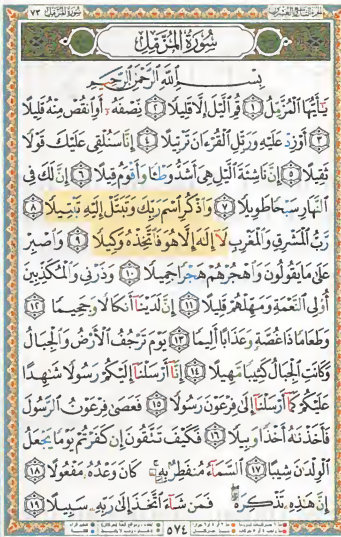 سُورَةُ المُزَّمِّلِ ٧٣
سُورَةُ المُزَّمِّلِ
بِسْمِ اللَّهِ الرَّحْمَٰنِ الرَّحِيمِ
يَٰٓأَيُّهَا ٱلْمُزَّمِّلُ ١ قُمِ ٱلَّيْلَ إِلَّا قَلِيلًا ٢ نِّصْفَهُۥٓ أَوِ ٱنقُصْ مِنْهُ قَلِيلًا
٣ أَوْ زِدْ عَلَيْهِ وَرَتِّلِ ٱلْقُرْءَانَ تَرْتِيلًا ٤ إِنَّا سَنُلْقِى عَلَيْكَ قَوْلًا
ثَقِيلًا ٥ إِنَّ نَاشِئَةَ ٱلَّيْلِ هِىَ أَشَدُّ وَطْـًٔا وَأَقْوَمُ قِيلًا ٦ إِنَّ لَكَ فِى
ٱلنَّهَارِ سَبْحًا طَوِيلًا ٧ وَٱذْكُرِ ٱسْمَ رَبِّكَ وَتَبَتَّلْ إِلَيْهِ تَبْتِيلًا ٨
رَّبُّ ٱلْمَشْرِقِ وَٱلْمَغْرِبِ لَآ إِلَٰهَ إِلَّا هُوَ فَٱتَّخِذْهُ وَكِيلًا ٩ وَٱصْبِرْ
عَلَىٰ مَا يَقُولُونَ وَٱهْجُرْهُمْ هَجْرًا جَمِيلًا ١٠ وَذَرْنِى وَٱلْمُكَذِّبِينَ
أُو۟لِى ٱلنَّعْمَةِ وَمَهِّلْهُمْ قَلِيلًا ١١ إِنَّ لَدَيْنَآ أَنكَالًا وَجَحِيمًا ١٢
وَطَعَامًا ذَا غُصَّةٍ وَعَذَابًا أَلِيمًا ١٣ يَوْمَ تَرْجُفُ ٱلْأَرْضُ وَٱلْجِبَالُ
وَكَانَتِ ٱلْجِبَالُ كَثِيبًا مَّهِيلًا ١٤ إِنَّآ أَرْسَلْنَآ إِلَيْكُمْ رَسُولًا شَٰهِدًا
عَلَيْكُمْ كَمَآ أَرْسَلْنَآ إِلَىٰ فِرْعَوْنَ رَسُولًا ١٥ فَعَصَىٰ فِرْعَوْنُ ٱلرَّسُولَ
فَأَخَذْنَٰهُ أَخْذًا وَبِيلًا ١٦ فَكَيْفَ تَتَّقُونَ إِن كَفَرْتُمْ يَوْمًا يَجْعَلُ
ٱلْوِلْدَٰنَ شِيبًا ١٧ ٱلسَّمَآءُ مُنفَطِرٌۢ بِهِۦ كَانَ وَعْدُهُۥ مَفْعُولًا ١٨
إِنَّ هَٰذِهِۦ تَذْكِرَةٌ فَمَن شَآءَ ٱتَّخَذَ إِلَىٰ رَبِّهِۦ سَبِيلًا ١٩
٥٧٤